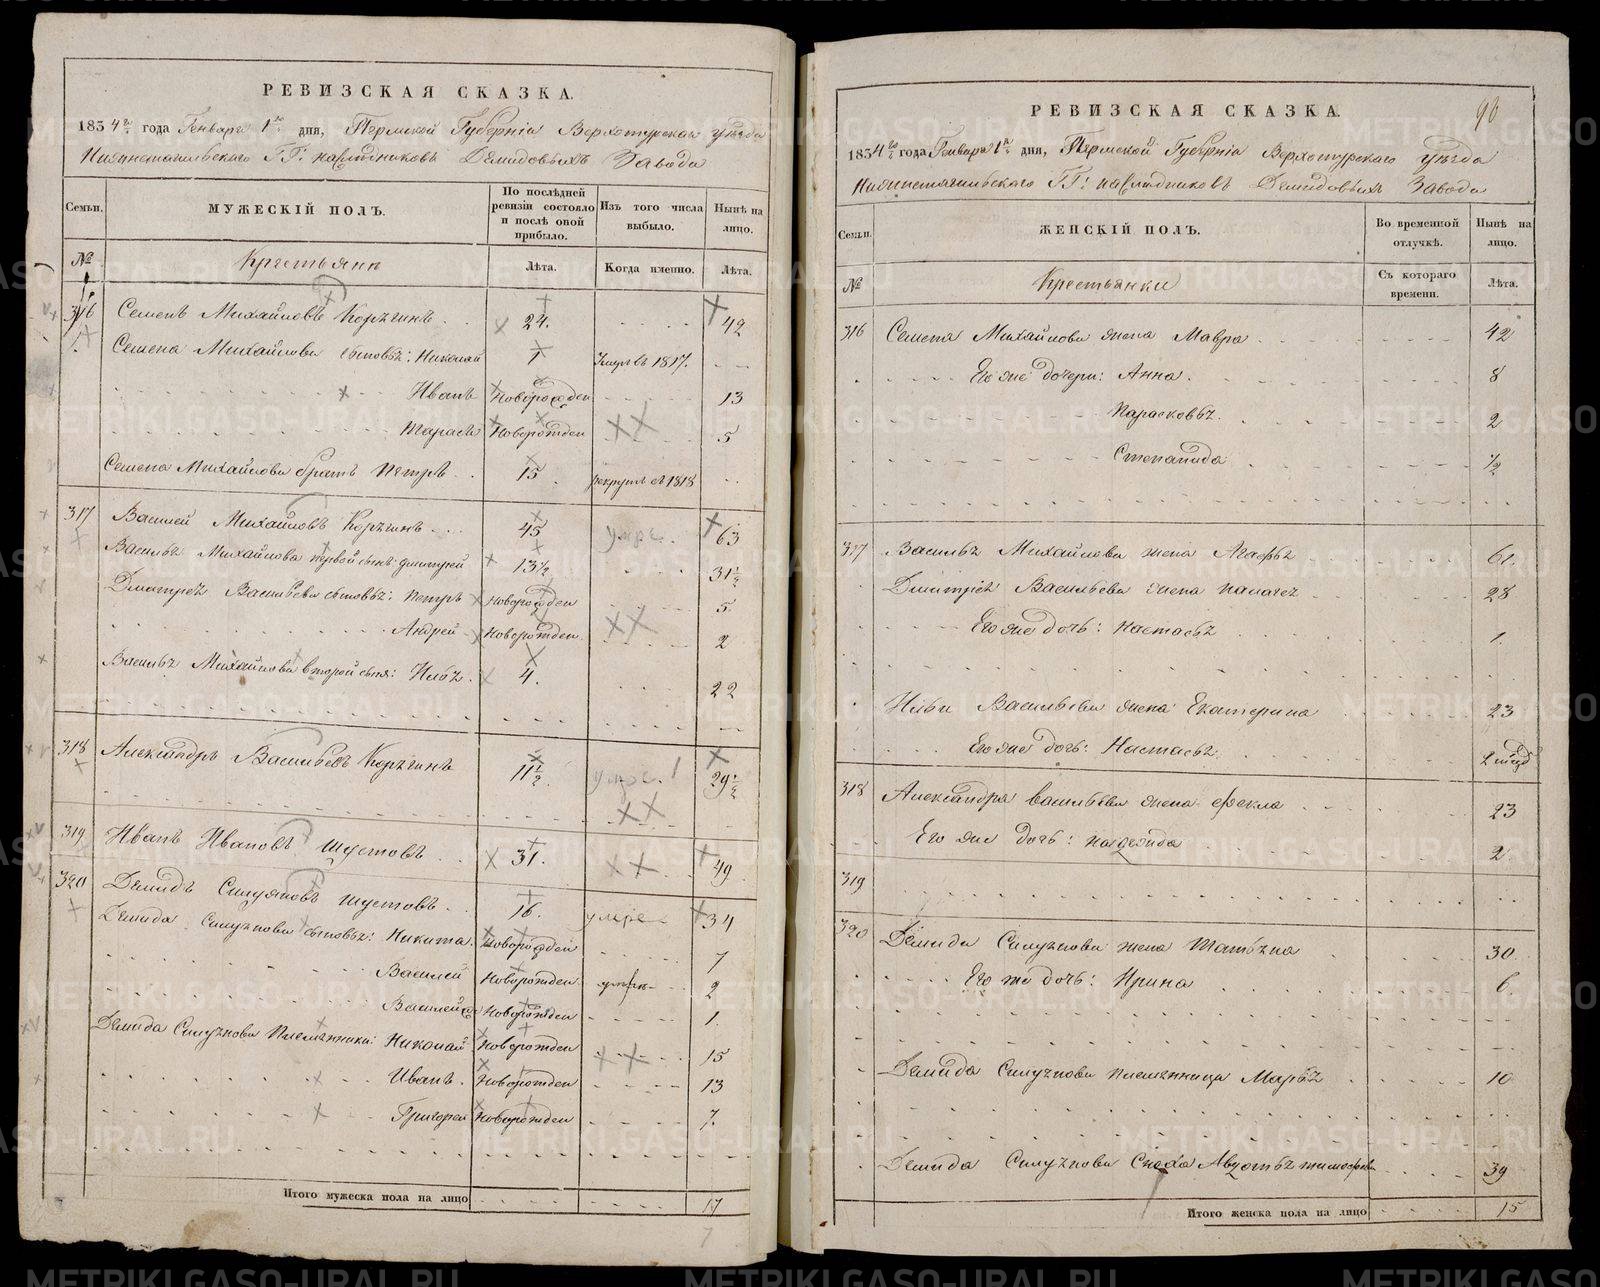 РЕВИЗСКАЯ СКАЗКА.
1834го года Генваря 1го дня, Пермской Губерніи Верхотурскаго уѣзда
Нижнетагильскаго ГГ: наслѣдниковъ Демидовыхъ Завода
Семьи. МУЖЕСКІЙ ПОЛЪ. По послѣдней ревизіи состояло и послѣ оной прибыло. Изъ того числа выбыло. Нынѣ на лицо.
№ Крестьяне Лѣта. Когда именно. Лѣта.
316 Семенъ Михайловъ Корѣгинъ 24. 42
Семена Михайлова сыновья: Николай 1 Умеръ въ 1817.
Иванъ Новорожден 13
Тарасъ Новорожден 5
Семена Михайлова братъ Петръ 15 рекрутъ съ 1818
317 Василей Михайловъ Корѣгинъ 45 умре. 63
Василья Михайлова первой сынъ: Дмитрей 13½ 31½
Дмитрея Васильева сыновья: Петръ Новорожден 5
Андрей Новорожден. 2
Василья Михайлова второй сынъ: Илья. 4. 22
318 Александръ Васильевъ Корѣгинъ 11½ умре. 29½
319 Иванъ Ивановъ Шустовъ 31. 49
320 Демидъ Силуяновъ Шустовъ. 16. умре 34
Демида Силуянова сыновья: Никита. Новорожден 7
Василей Новорожден 2
Василей Новорожден 1.
Демида Силуянова племянники: Николай Новорожден 15
Иванъ. Новорожден 13
Григорей Новорожден 7.
Итого мужеска пола на лицо 17
7
90
РЕВИЗСКАЯ СКАЗКА.
1834го года Генваря 1го дня, Пермской Губерніи Верхотурскаго уѣзда
Нижнетагильскаго ГГ: наслѣдниковъ Демидовыхъ Завода
Семьи. ЖЕНСКІЙ ПОЛЪ. Во временной отлучкѣ. Нынѣ на лицо.
№ Крестьянки Съ котораго времени. Лѣта.
316 Семена Михайлова жена Мавра 42
Его же дочери: Анна. 8
Парасковья. 2
Степанида ½
317 Василья Михайлова жена Агафья 61.
Дмитрія Васильева жена Палагея 28
Его же дочь: Настасья 1.
Ильи Васильева жена Екатерина 23
Его же дочь: Настасья 2 мѣся
318 Александра Васильева жена Фекла 23
Его же дочь: Надежда 2
319
320 Демида Силуянова жена Татьяна 30
Его же дочь: Ирина 6.
Демида Силуянова племянница Марья 10
Демида Силуянова Сноха Авдотья Тимофеева 39
Итого женска пола на лицо 15
METRIKI.GASO-URAL.RU